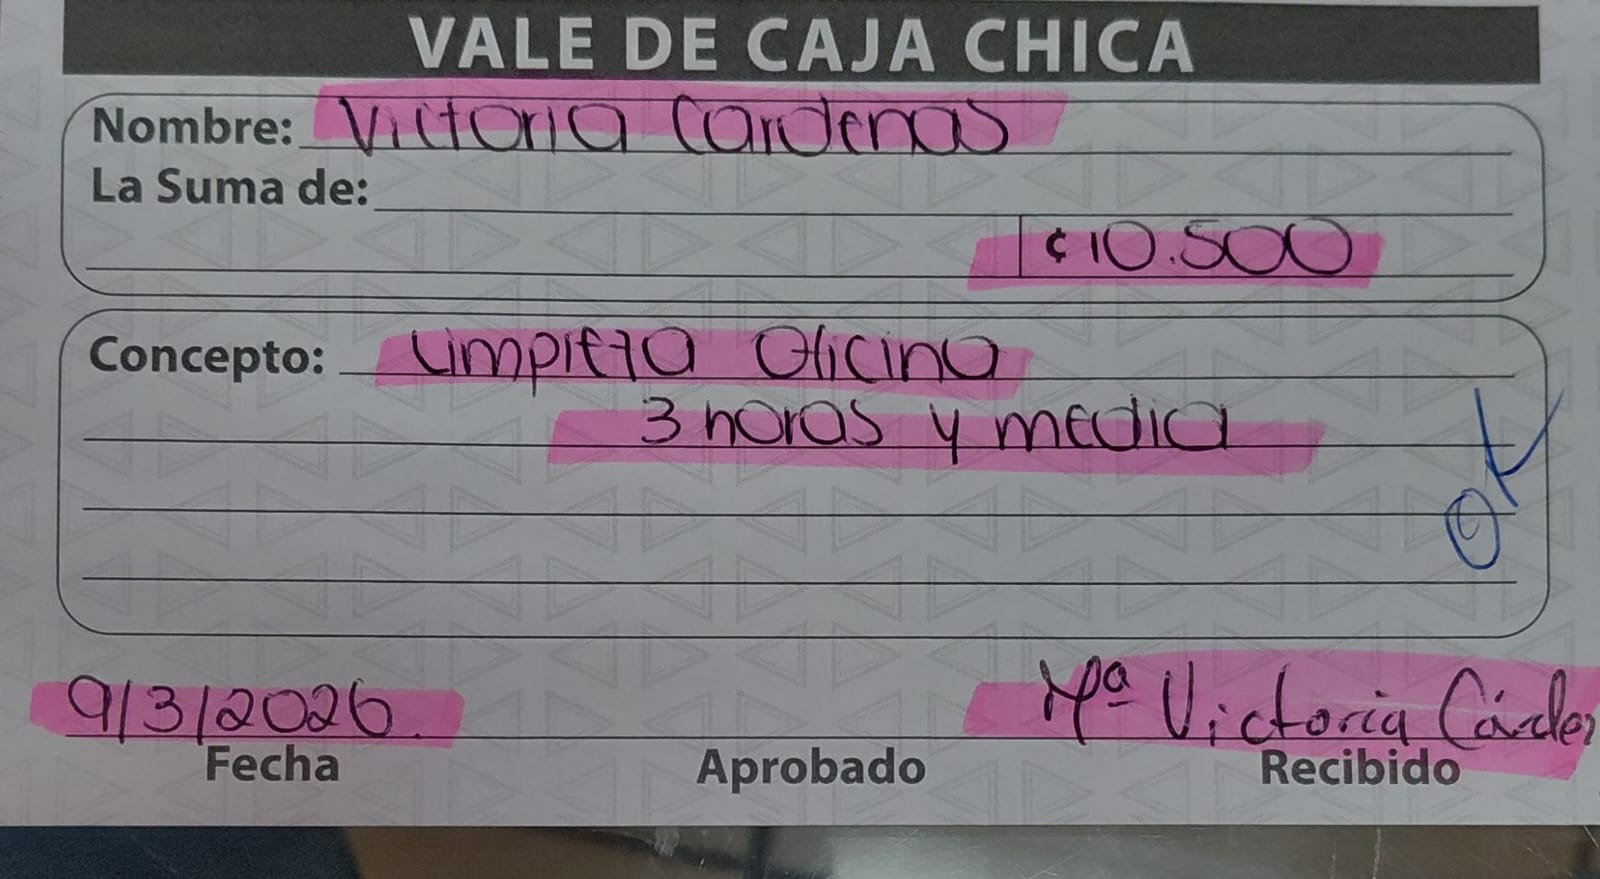 VALE DE CAJA CHICA
Nombre: Victoria Cardenas
La Suma de:
¢10.500
Concepto: Limpieza Oficina
3 horas y media
OK
9/3/2026.
Mª Victoria Cárden
Fecha Aprobado Recibido